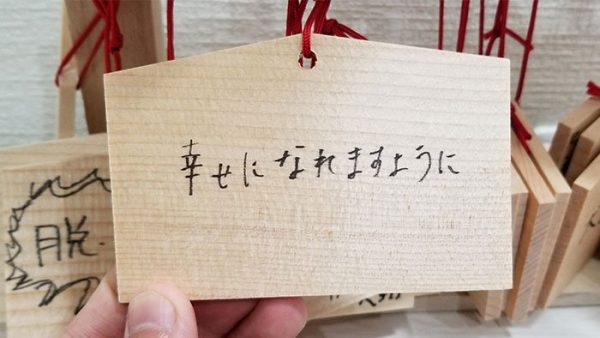 幸せになれますように
脱